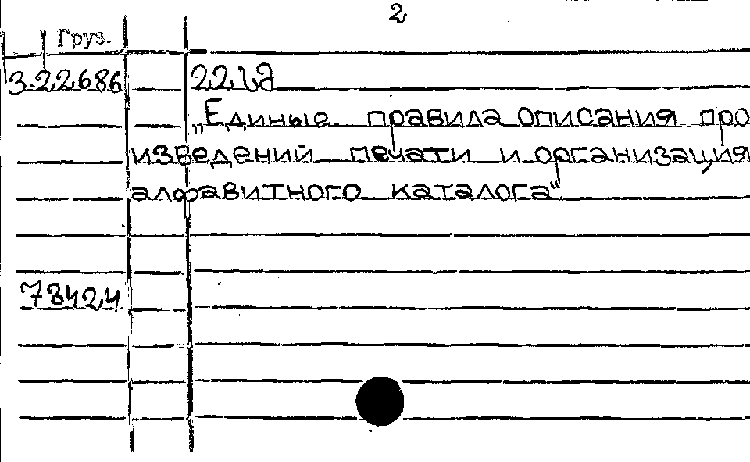 2
Груз.
3.22686
„Единые правила описания про
изведений печати и организация
алфавитного каталога“
78424